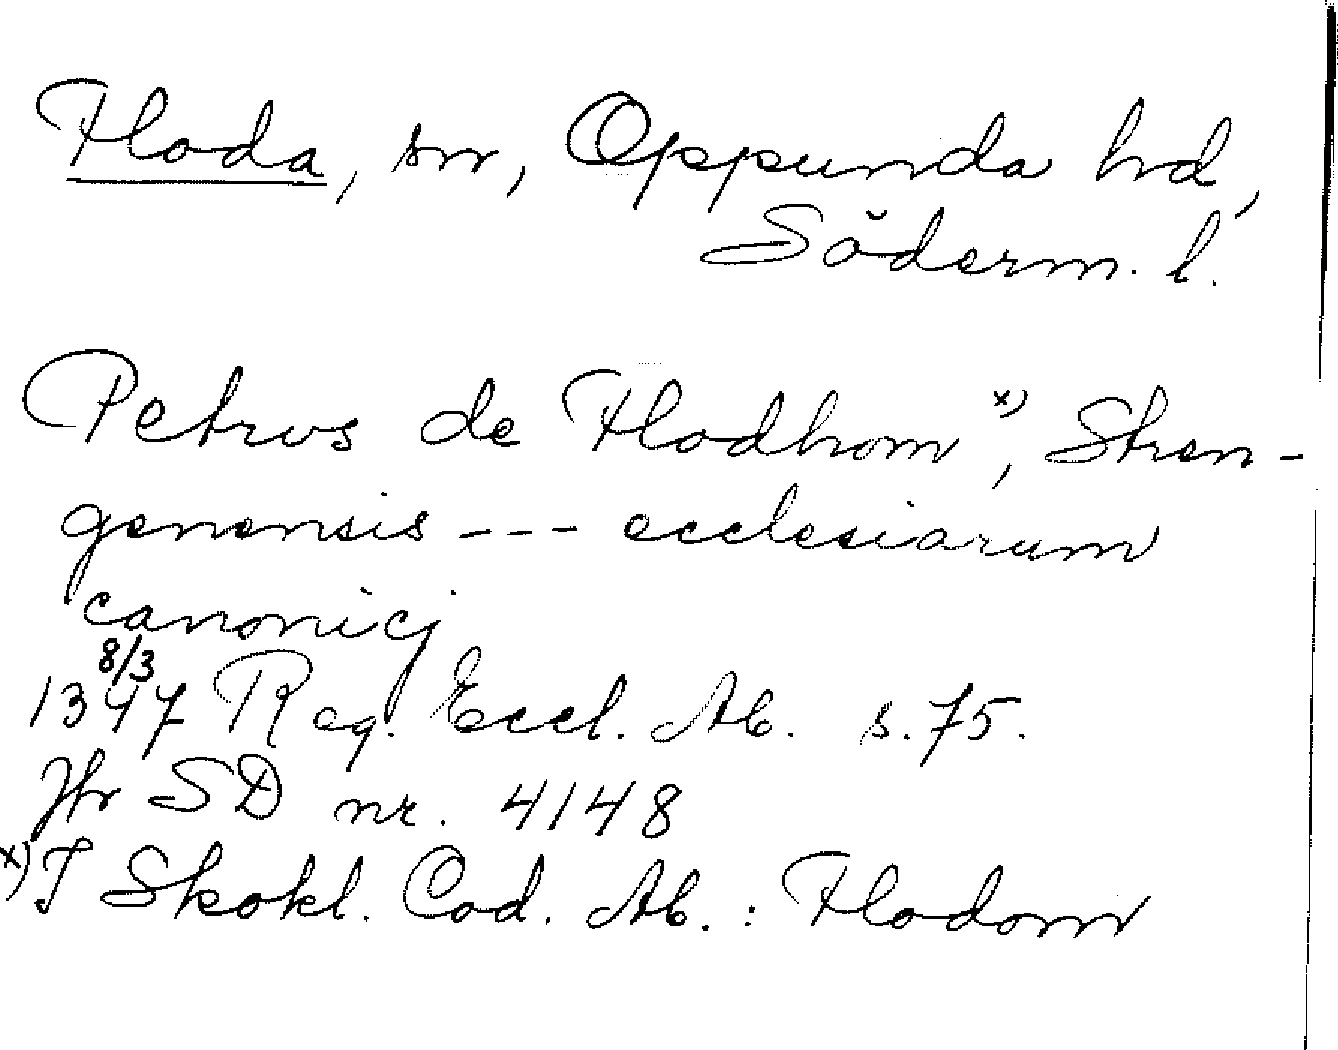 Floda, sn, Oppunda hd,
Söderm. l.
Petrus de Flodhom x), Stren-
genensis --- ecclesiarum
canonicj
1347 8/3 Reg. Eccl. Ab. s. 75.
Jfr SD nr. 4148
x) I Skokl. Cod. Ab. : Flodom